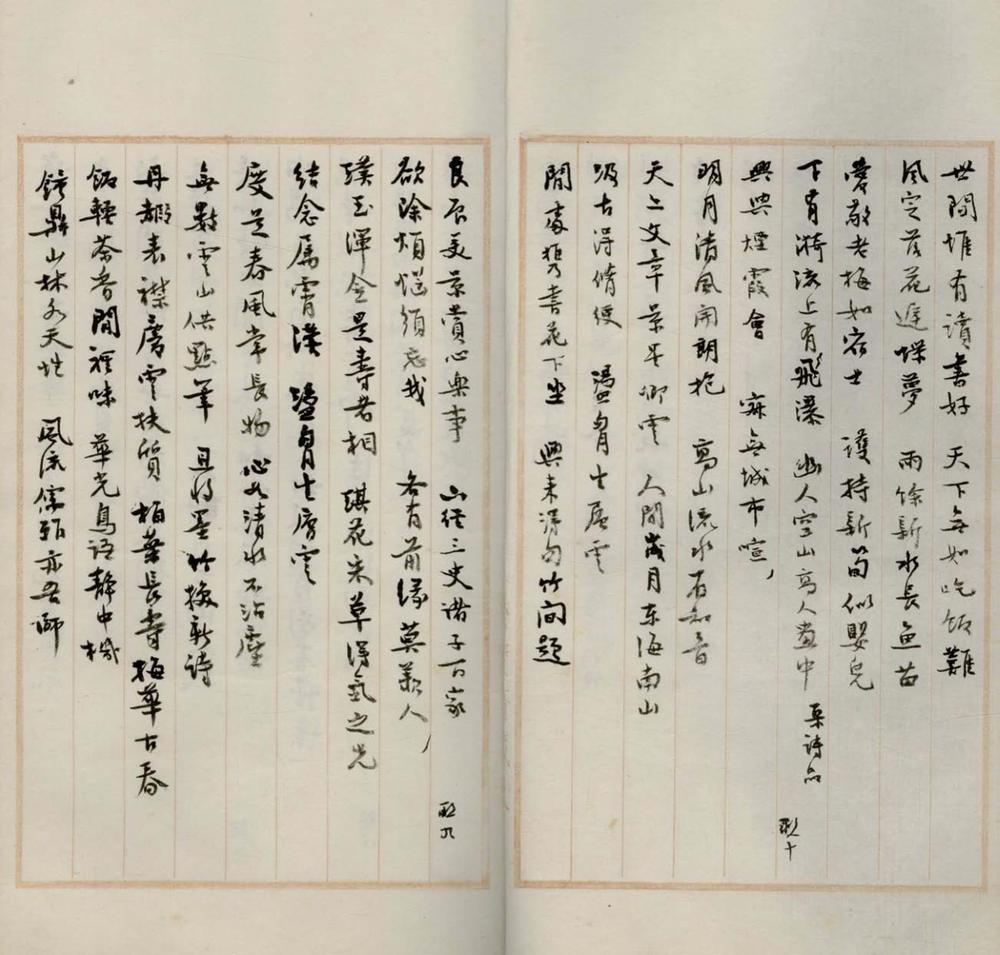 世間惟有讀書好 天下無如吃飯難
風定落花進蝶夢 雨餘新水長魚苗
愛敬老梅如宿士 護持新筍似嬰兒
下有漪流上有飛瀑 幽人空山高人畫中 集詩品
興與煙霞會 寂無城市喧
明月清風開朗抱 高山流水有知音
天上文章景星卿雲 人間歲月東海南山
汲古得脩綆 盪胸生層雲
閒處携書花下坐 興來得句竹間題
良辰美景賞心樂事 六經三史諸子百家
欲除煩惱須忘我 各有前緣莫羨人
璞玉渾金是壽者相 琪花朱草得氣之先
結念屬霄漢 盪胸生層雲
度是春風常長物 心如清水不沾塵
無數雲山供點筆 且將墨竹換新詩
丹霞表襟慶雲扶質 柏葉長壽梅華古春
飯軟茶香閒裡味 華光鳥語靜中機
鐘鼎山林各天性 風流儒雅亦吾師